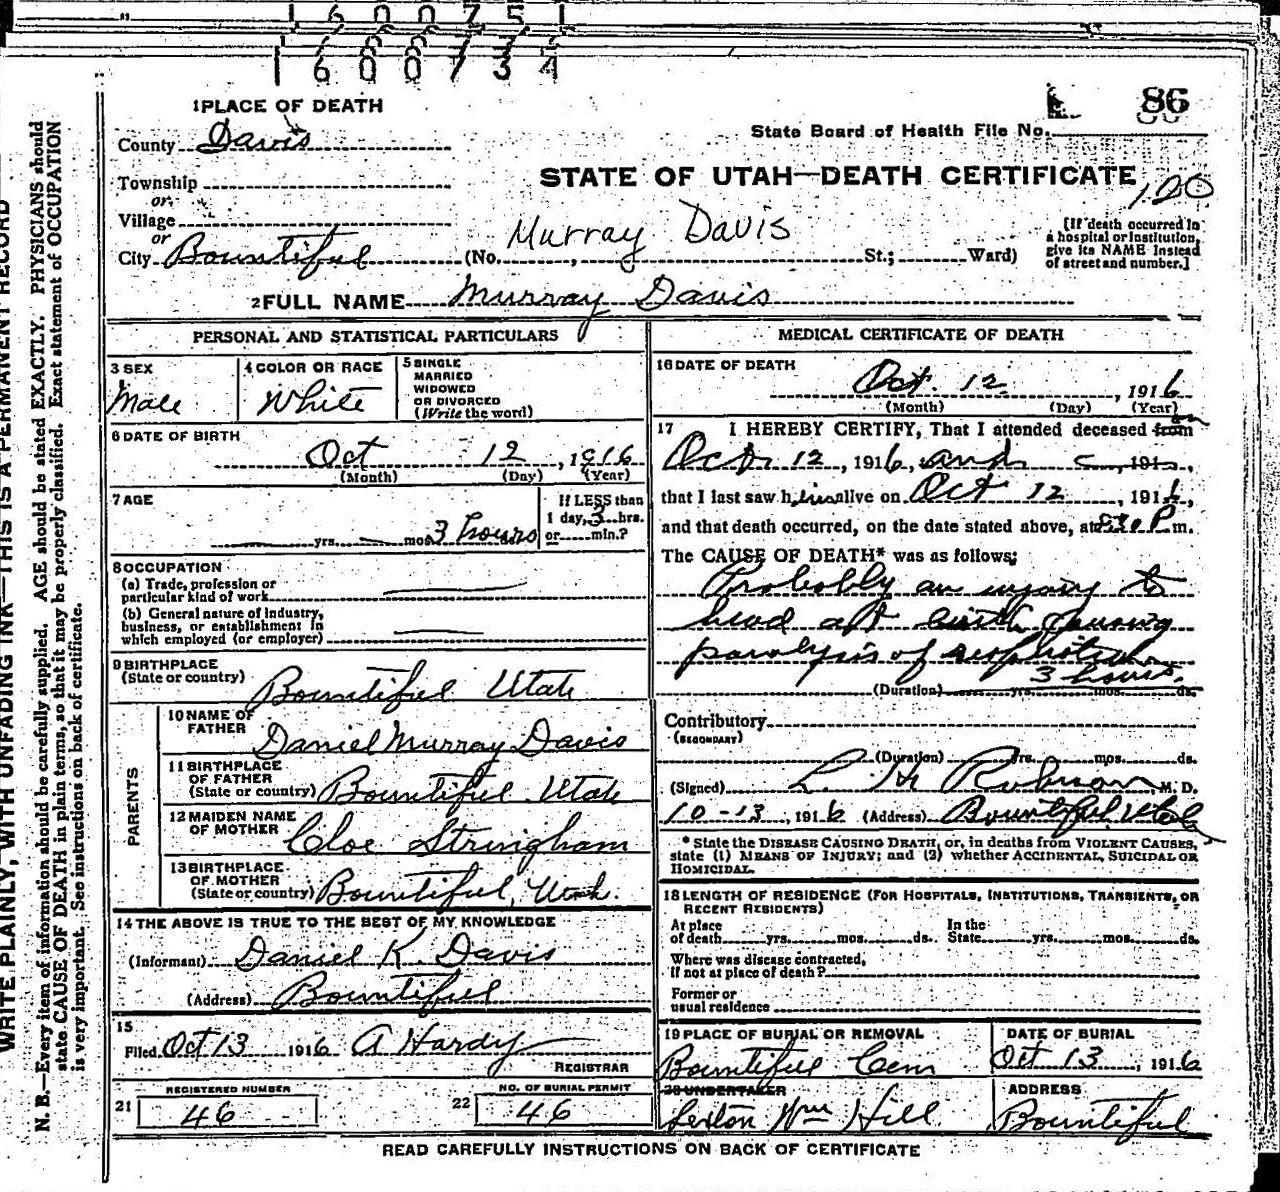 1600751
1600734
1 PLACE OF DEATH
County Davis
Township
or
Village
or
City Bountiful (No. , St.; Ward)
86
State Board of Health File No.
STATE OF UTAH—DEATH CERTIFICATE
120
Murray Davis
[If death occurred in
a hospital or institution,
give its NAME instead
of street and number.]
2 FULL NAME Murray Davis
PERSONAL AND STATISTICAL PARTICULARS
3 SEX
Male
4 COLOR OR RACE
White
5 SINGLE
MARRIED
WIDOWED
OR DIVORCED
(Write the word)
6 DATE OF BIRTH
Oct 12, 1916
(Month) (Day) (Year)
7 AGE
yrs. mos. 3 hours
If LESS than
1 day, 3 hrs.
or min.?
8 OCCUPATION
(a) Trade, profession or
particular kind of work
(b) General nature of industry,
business, or establishment in
which employed (or employer)
9 BIRTHPLACE
(State or country)
Bountiful Utah
PARENTS
10 NAME OF
FATHER
Daniel Murray Davis
11 BIRTHPLACE
OF FATHER
(State or country) Bountiful Utah
12 MAIDEN NAME
OF MOTHER
Cloe Stringham
13 BIRTHPLACE
OF MOTHER
(State or country) Bountiful, Utah
14 THE ABOVE IS TRUE TO THE BEST OF MY KNOWLEDGE
(Informant) Daniel K. Davis
(Address) Bountiful
15
Filed Oct 13 1916 A Hardy
REGISTRAR
REGISTERED NUMBER
21 46
NO. OF BURIAL PERMIT
22 46
MEDICAL CERTIFICATE OF DEATH
16 DATE OF DEATH
Oct. 12, 1916
(Month) (Day) (Year)
17 I HEREBY CERTIFY, That I attended deceased from on
Oct. 12, 1916, and , 191 ,
that I last saw him alive on Oct 12, 1916,
and that death occurred, on the date stated above, at 830 P m.
The CAUSE OF DEATH* was as follows:
Probably an injury to
head at birth causing
paralysis of
3 hours.
(Duration) yrs. mos. ds.
Contributory
(SECONDARY)
(Duration) yrs. mos. ds.
(Signed) L. M. M. D.
10-13, 1916 (Address) Bountiful Utah
* State the DISEASE CAUSING DEATH, or, in deaths from VIOLENT CAUSES,
state (1) MEANS OF INJURY; and (2) whether ACCIDENTAL, SUICIDAL OR
HOMICIDAL.
18 LENGTH OF RESIDENCE (FOR HOSPITALS, INSTITUTIONS, TRANSIENTS, OR
RECENT RESIDENTS)
At place
of death yrs. mos. ds.
In the
State yrs. mos. ds.
Where was disease contracted,
if not at place of death?
Former or
usual residence
19 PLACE OF BURIAL OR REMOVAL
Bountiful Cem
DATE OF BURIAL
Oct 13, 1916
20 UNDERTAKER
Sexton Wm Hill
ADDRESS
Bountiful
READ CAREFULLY INSTRUCTIONS ON BACK OF CERTIFICATE
WRITE PLAINLY, WITH UNFADING INK—THIS IS A PERMANENT RECORD
N. B.—Every item of information should be carefully supplied. AGE should be stated EXACTLY. PHYSICIANS should
state CAUSE OF DEATH in plain terms, so that it may be properly classified. Exact statement of OCCUPATION
is very important. See instructions on back of certificate.